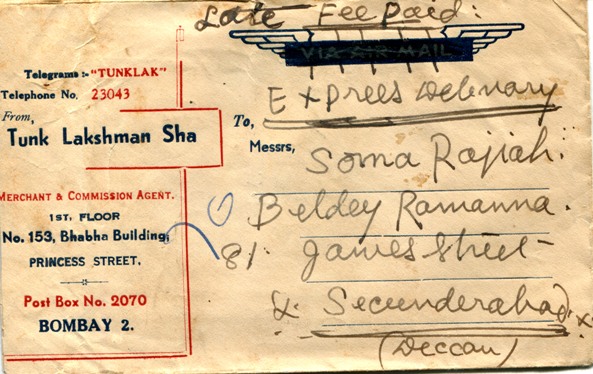 Late Fee Paid:
VIA AIR MAIL
Telegrams :- "TUNKLAK"
Telephone No. 23043
Exprees Delivary
From,
Tunk Lakshman Sha
To,
Messrs,
Soma Rajiah.
MERCHANT & COMMISSION AGENT.
1ST. FLOOR
No. 153, Bhabha Building,
PRINCESS STREET.
Post Box No. 2070
BOMBAY 2.
Beldey Ramanna.
81. James Street
Secunderabad.
(Deccan)